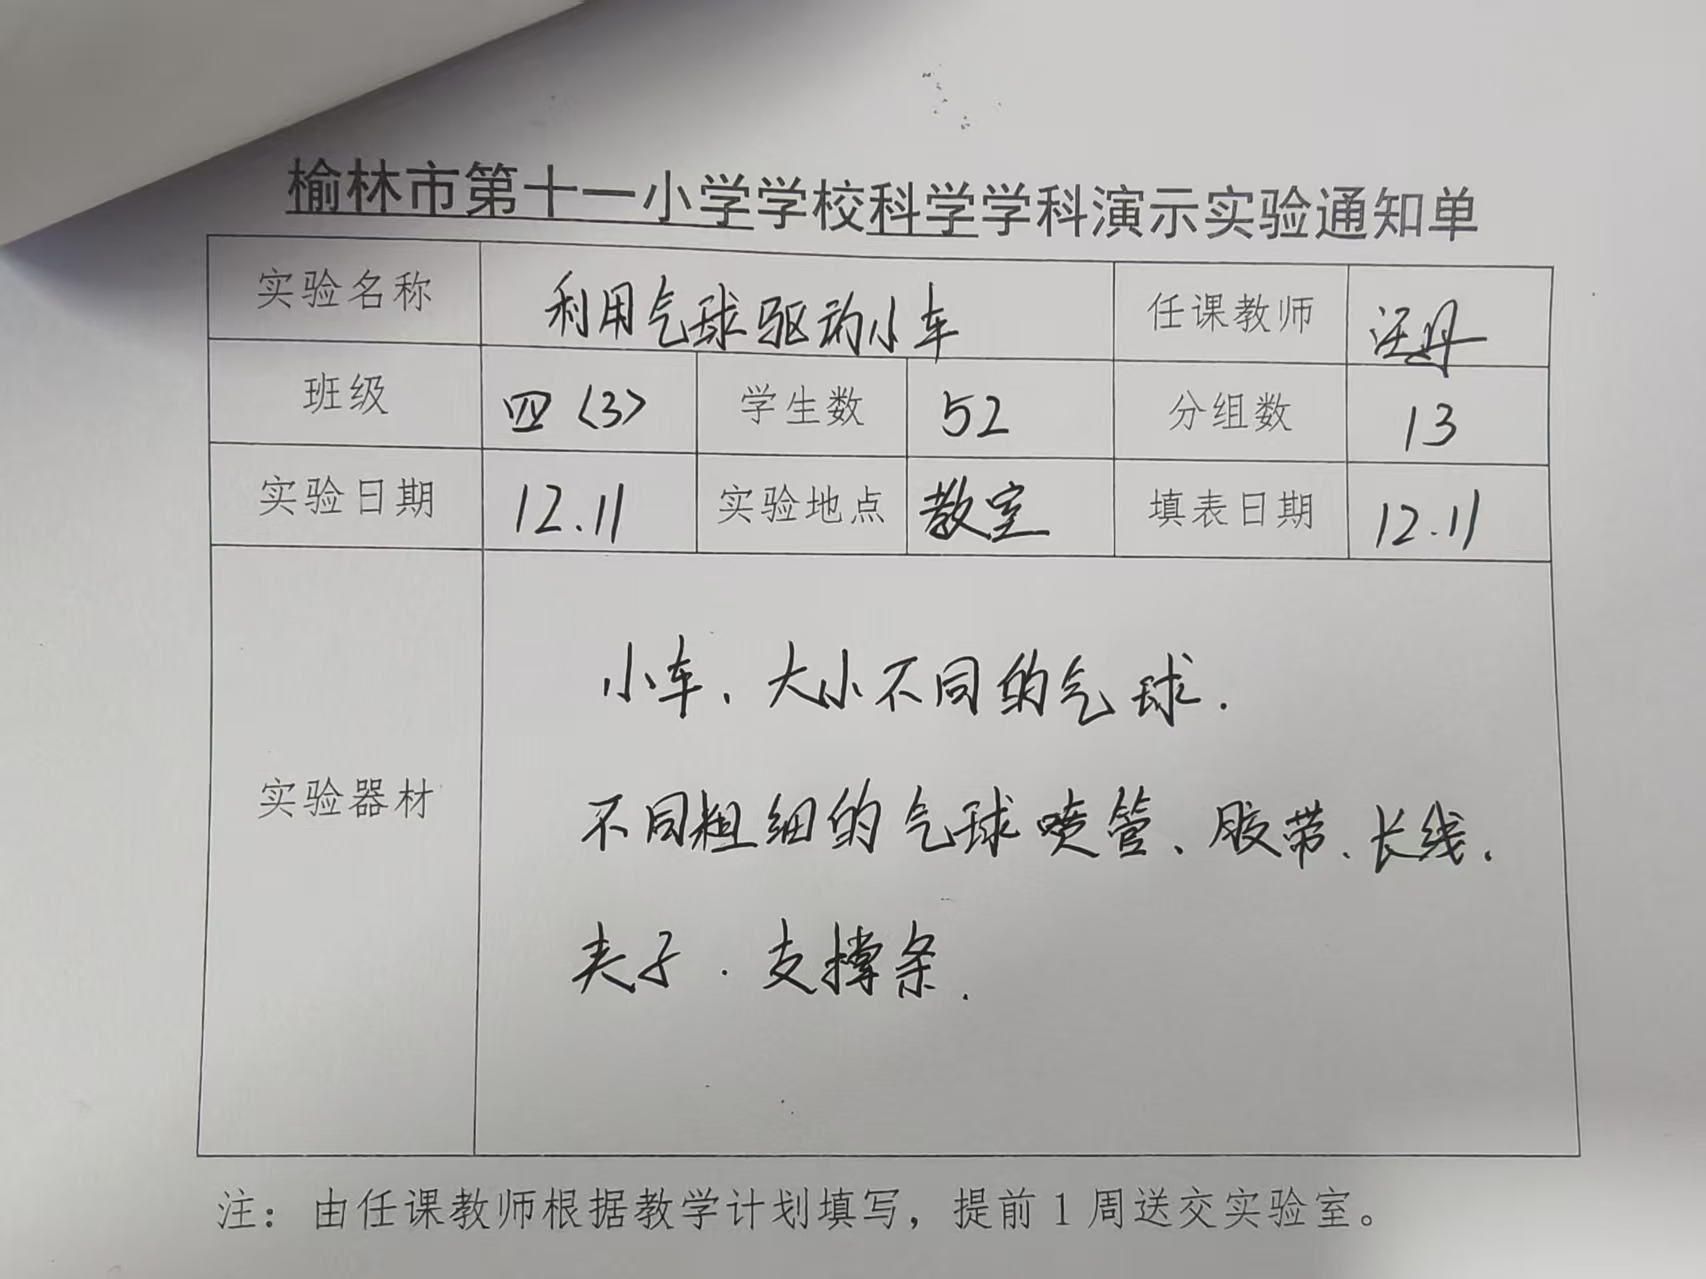 榆林市第十一小学学校科学学科演示实验通知单
实验名称 利用气球驱动小车 任课教师 汪丹
班级 四〈3〉 学生数 52 分组数 13
实验日期 12.11 实验地点 教室 填表日期 12.11
小车、大小不同的气球.
实验器材 不同粗细的气球喷管、胶带、长线.
夹子.支撑条.
注：由任课教师根据教学计划填写，提前1周送交实验室。